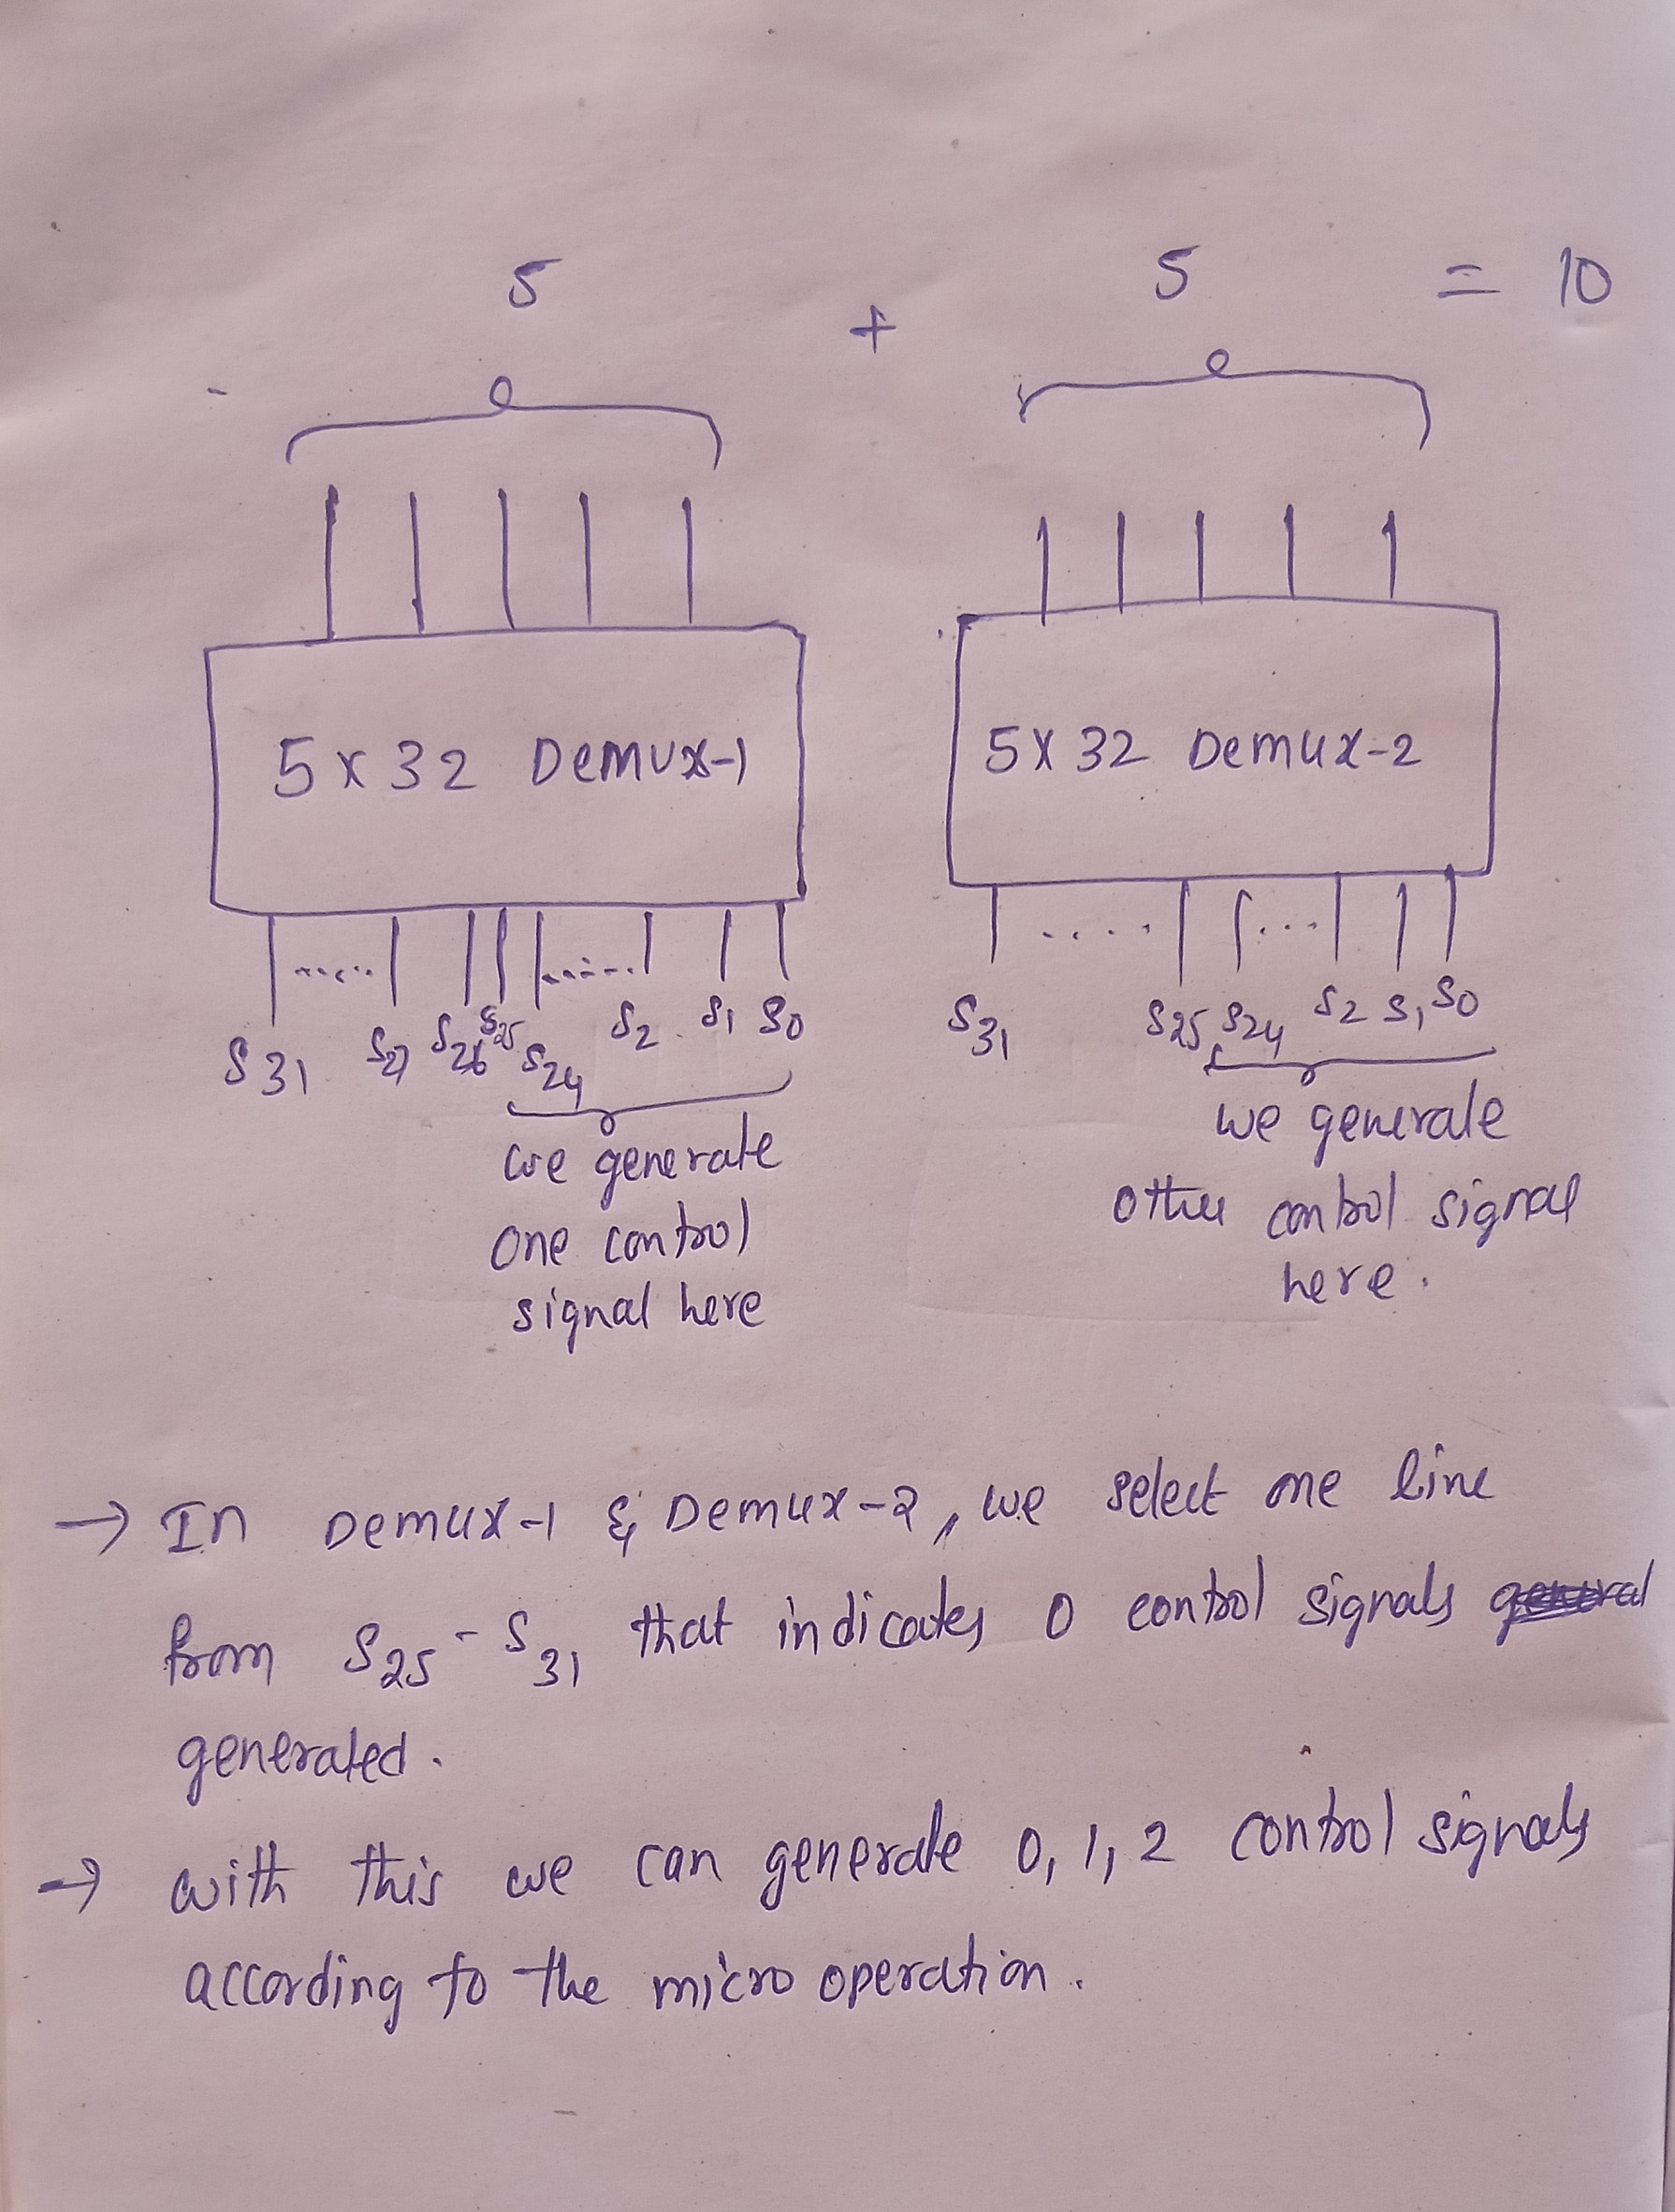 5 + 5 = 10
5 x 32 Demux-1
5 x 32 Demux-2
S31 S27 S26 S25 S24 S2 S1 S0
S31 S25 S24 S2 S1 S0
we generate
one control
signal here
we generate
other control signal
here.
→ In Demux-1 & Demux-2, we select one line
from S25 - S31 that indicates 0 control signals
generated.
→ with this we can generate 0, 1, 2 control signals
according to the micro operation.